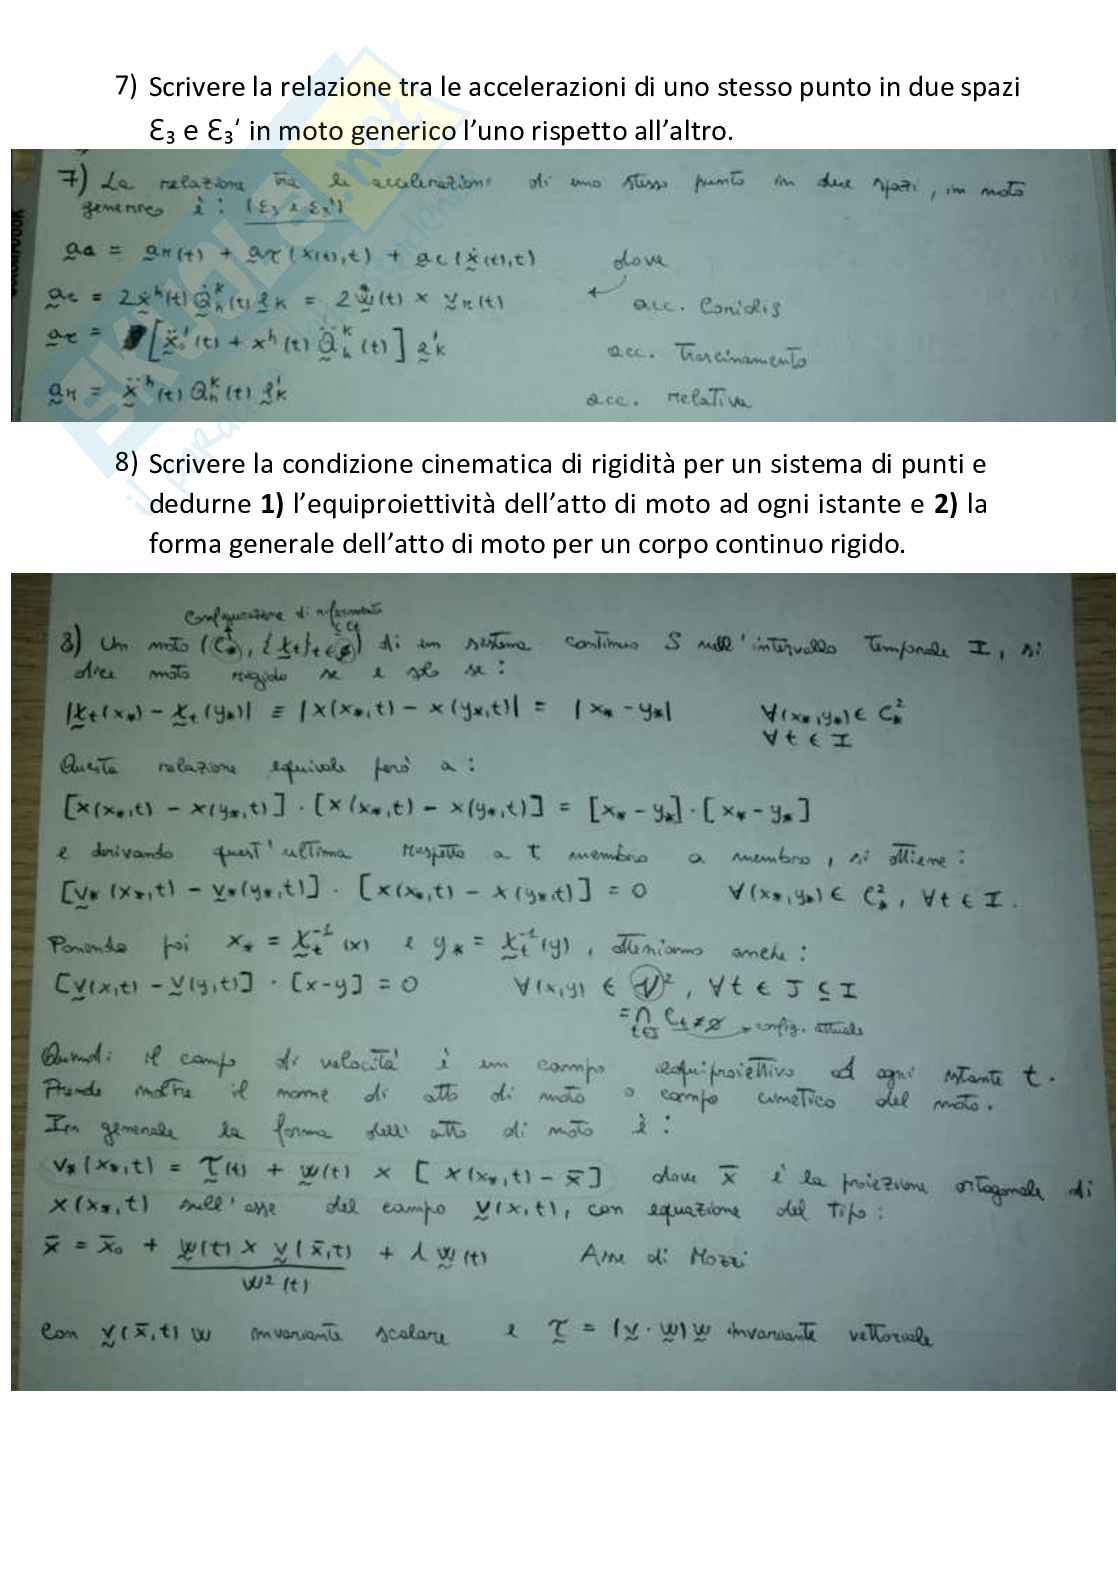 7) Scrivere la relazione tra le accelerazioni di uno stesso punto in due spazi
Ɛ₃ e Ɛ₃' in moto generico l'uno rispetto all'altro.
7) La relazione tra le accelerazioni di uno stesso punto in due spazi, in moto
generico è: (ε₃ e ε₃')
aₐ = aᵣ(t) + a_τ(x(t),t) + a_c(ẋ(t),t) dove
a_c = 2ẋʰ(t) Q̇ₕᵏ(t) e'ₖ = 2w(t) × vᵣ(t) acc. Coriolis
a_τ = [ẍ₀'(t) + xʰ(t) Q̈ₕᵏ(t)] e'ₖ acc. Trascinamento
aᵣ = ẍʰ(t) Qₕᵏ(t) e'ₖ acc. relativa
8) Scrivere la condizione cinematica di rigidità per un sistema di punti e
dedurne 1) l'equiproiettività dell'atto di moto ad ogni istante e 2) la
forma generale dell'atto di moto per un corpo continuo rigido.
Configurazione di riferimento
8) Un moto (C*, {χt}t∈ ) di un sistema continuo S sull'intervallo temporale I, si
dice moto rigido se e solo se:
|χt(x*) - χt(y*)| ≡ |x(x*,t) - x(y*,t)| = |x* - y*| ∀(x*,y*) ∈ C*²
∀ t ∈ I
Questa relazione equivale però a:
[x(x*,t) - x(y*,t)] · [x(x*,t) - x(y*,t)] = [x* - y*] · [x* - y*]
e derivando quest'ultima rispetto a t membro a membro, si ottiene:
[v*(x*,t) - v*(y*,t)] · [x(x*,t) - x(y*,t)] = 0 ∀(x*,y*) ∈ C*², ∀t ∈ I.
Ponendo poi x* = χt⁻¹(x) e y* = χt⁻¹(y), otteniamo anche:
[v(x,t) - v(y,t)] · [x-y] = 0 ∀(x,y) ∈ V², ∀t ∈ J ⊆ I
= ∩ t∈J Ct ≠ ∅ → config. attuale
Quindi il campo di velocità è un campo equiproiettivo ad ogni istante t.
Prende inoltre il nome di atto di moto o campo cinetico del moto.
In generale la forma dell'atto di moto è:
v*(x*,t) = τ(t) + w(t) × [x(x*,t) - x̄] dove x̄ è la proiezione ortogonale di
x(x*,t) sull'asse del campo v(x,t), con equazione del tipo:
x̄ = x̄₀ + w(t) × v(x̄,t) / w²(t) + λ w(t) Asse di Mozzi
Con v(x̄,t) w invariante scalare e τ = (v · w) w invariante vettoriale